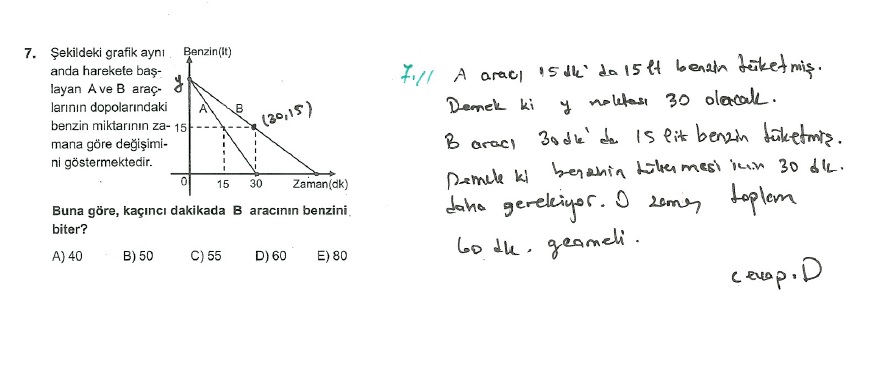 7. Şekildeki grafik aynı
anda harekete baş-
layan A ve B araç-
larının dopolarındaki
benzin miktarının za-
mana göre değişimi-
ni göstermektedir.
Benzin(lt)
y
A
B
(30,15)
15
0
15
30
Zaman(dk)
Buna göre, kaçıncı dakikada B aracının benzini
biter?
A) 40 B) 50 C) 55 D) 60 E) 80
7.//
A aracı 15 dk' da 15 lt benzin tüketmiş.
Demek ki y noktası 30 olacak.
B aracı 30 dk' da 15 lit benzin tüketmiş.
Demek ki benzinin tükenmesi için 30 dk.
daha gerekiyor. O zaman toplam
60 dk. geçmeli.
cevap. D